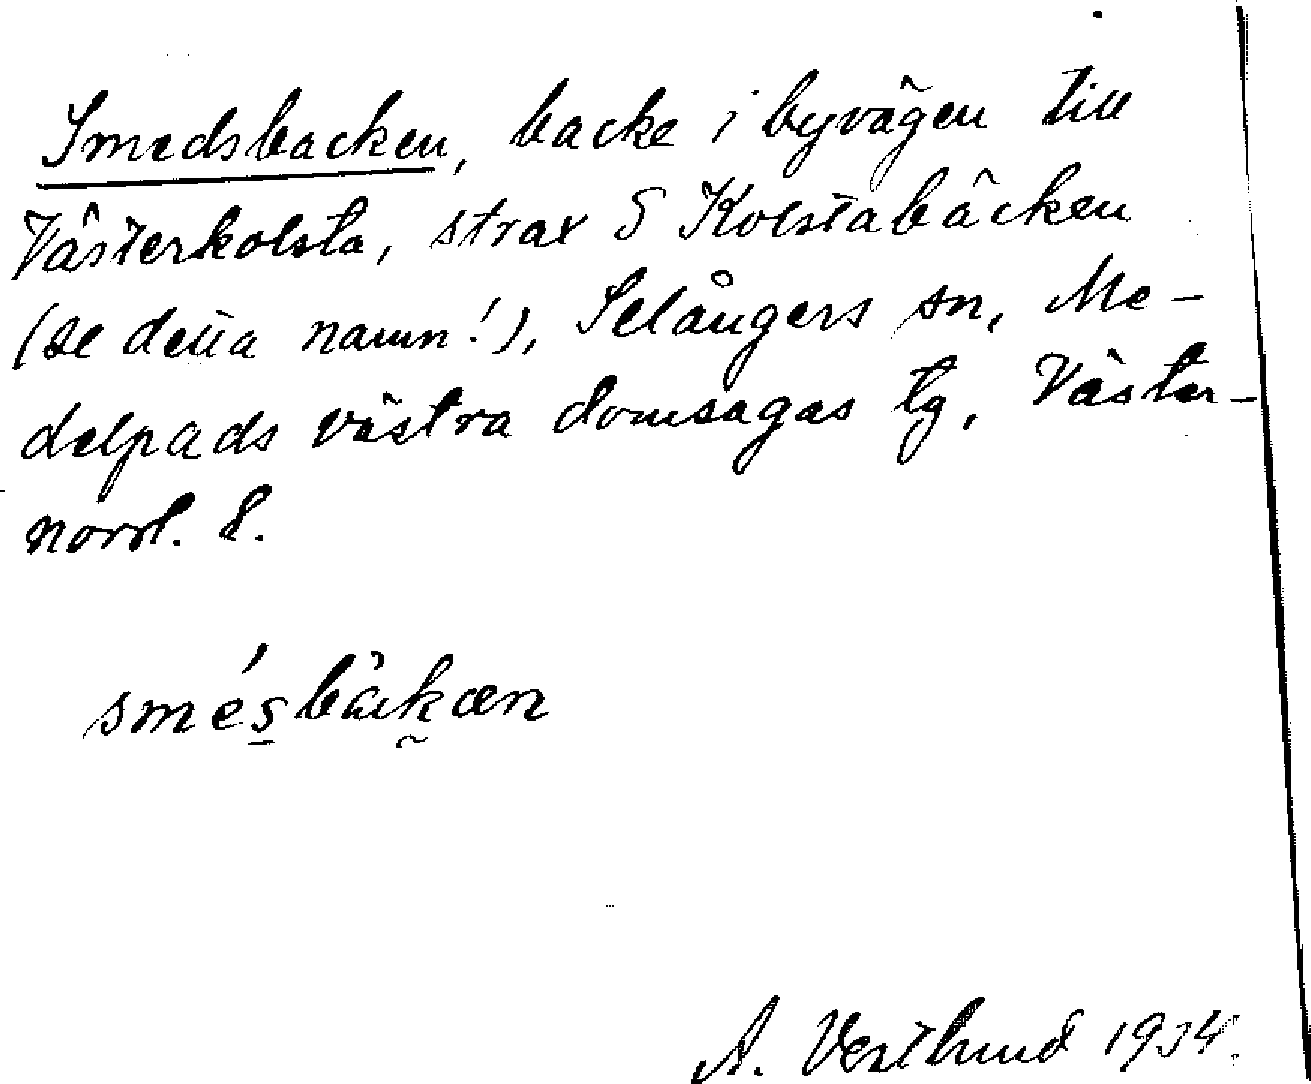 Smedsbacken, backe i byvägen till
Västerkolsta, strax S Kolstabäcken
(se detta namn!), Selångers sn, Me-
delpads västra domsagas tg, Väster-
norrl. l.
smésbàkæn
A. Vestlund 1934.